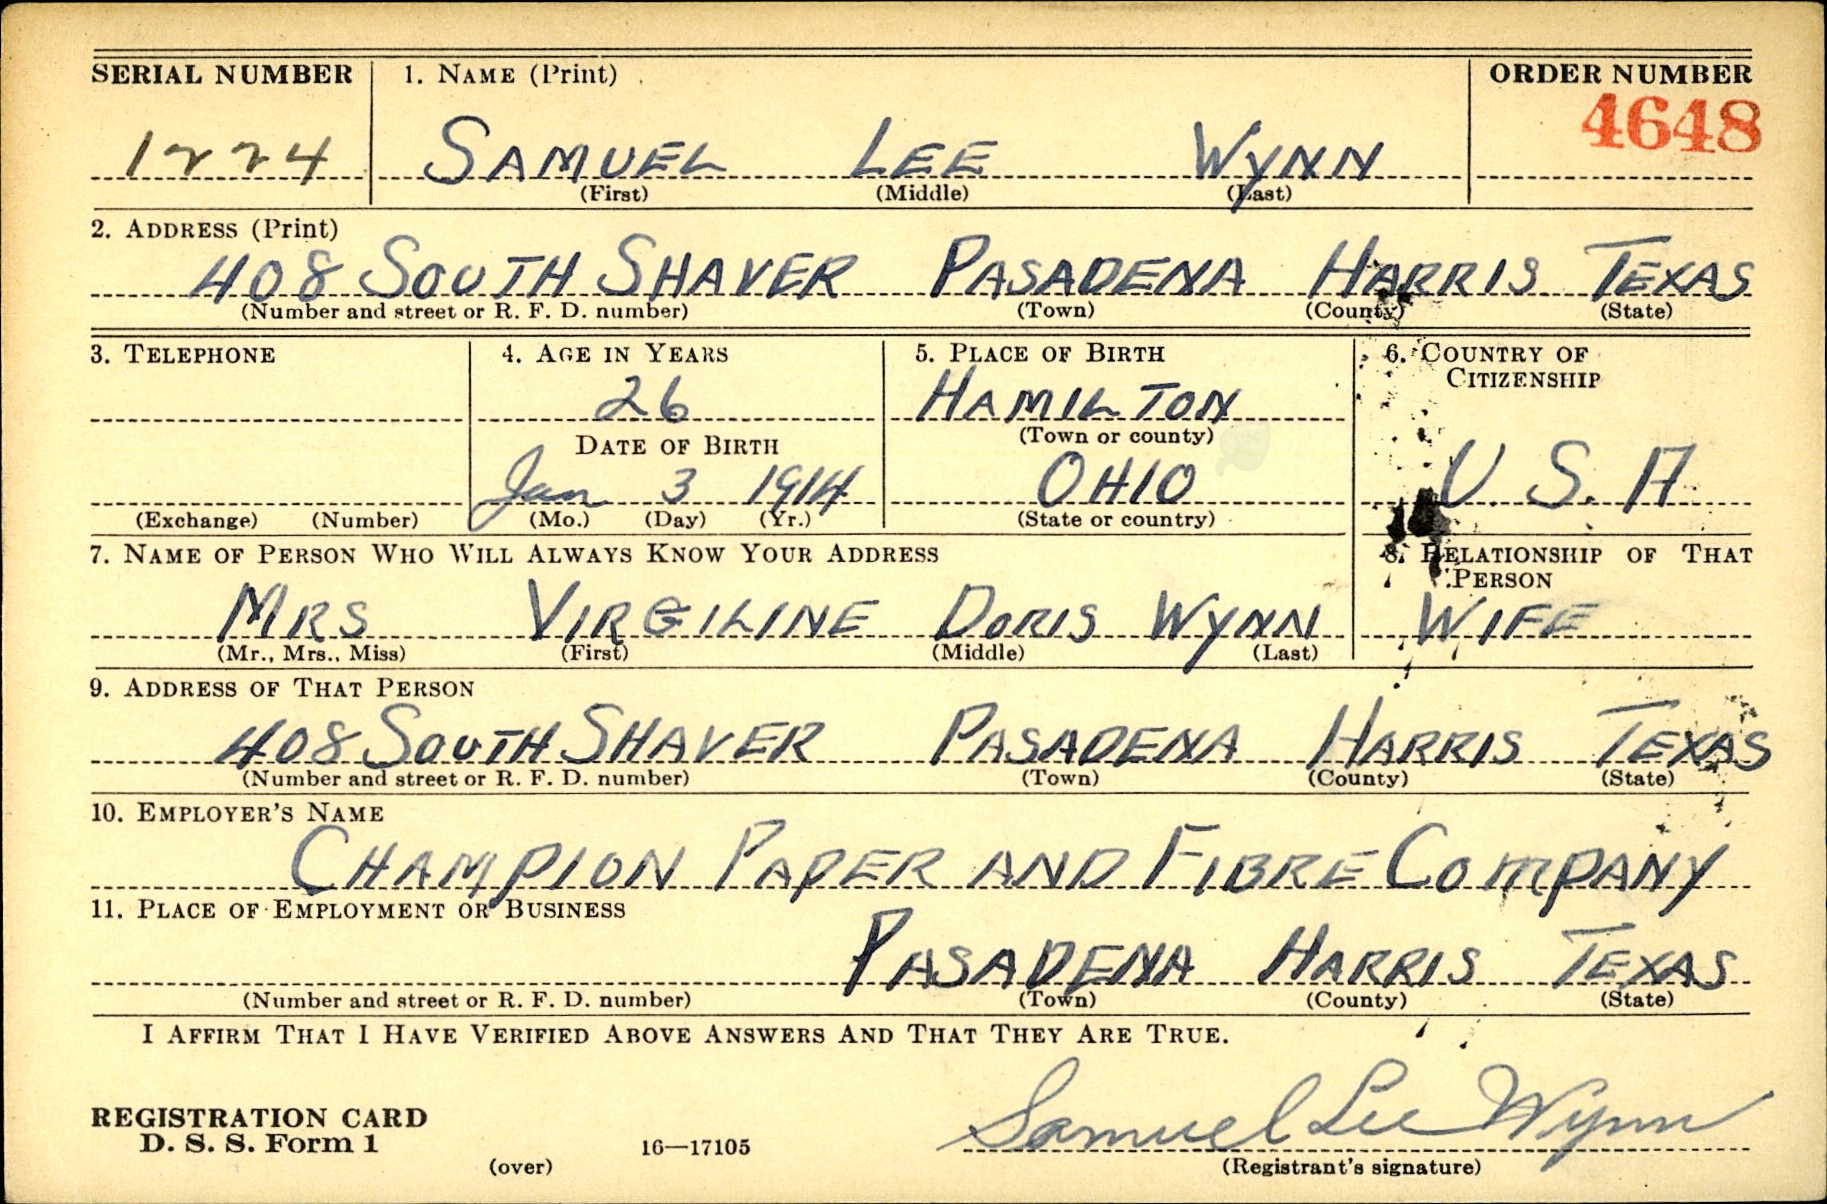 SERIAL NUMBER 1. NAME (Print) ORDER NUMBER
1224 SAMUEL LEE WYNN 4648
(First) (Middle) (Last)
2. ADDRESS (Print)
408 SOUTH SHAVER PASADENA HARRIS TEXAS
(Number and street or R. F. D. number) (Town) (County) (State)
3. TELEPHONE 4. AGE IN YEARS 5. PLACE OF BIRTH 6. COUNTRY OF
CITIZENSHIP
26 HAMILTON
DATE OF BIRTH (Town or county)
Jan 3 1914 OHIO U. S. A
(Exchange) (Number) (Mo.) (Day) (Yr.) (State or country)
7. NAME OF PERSON WHO WILL ALWAYS KNOW YOUR ADDRESS 8. RELATIONSHIP OF THAT
PERSON
MRS VIRGILINE DORIS WYNN WIFE
(Mr., Mrs., Miss) (First) (Middle) (Last)
9. ADDRESS OF THAT PERSON
408 SOUTH SHAVER PASADENA HARRIS TEXAS
(Number and street or R. F. D. number) (Town) (County) (State)
10. EMPLOYER'S NAME
CHAMPION PAPER AND FIBRE COMPANY
11. PLACE OF EMPLOYMENT OR BUSINESS
PASADENA HARRIS TEXAS
(Number and street or R. F. D. number) (Town) (County) (State)
I AFFIRM THAT I HAVE VERIFIED ABOVE ANSWERS AND THAT THEY ARE TRUE.
REGISTRATION CARD Samuel Lee Wynn
D. S. S. Form 1 16—17105
(over) (Registrant's signature)